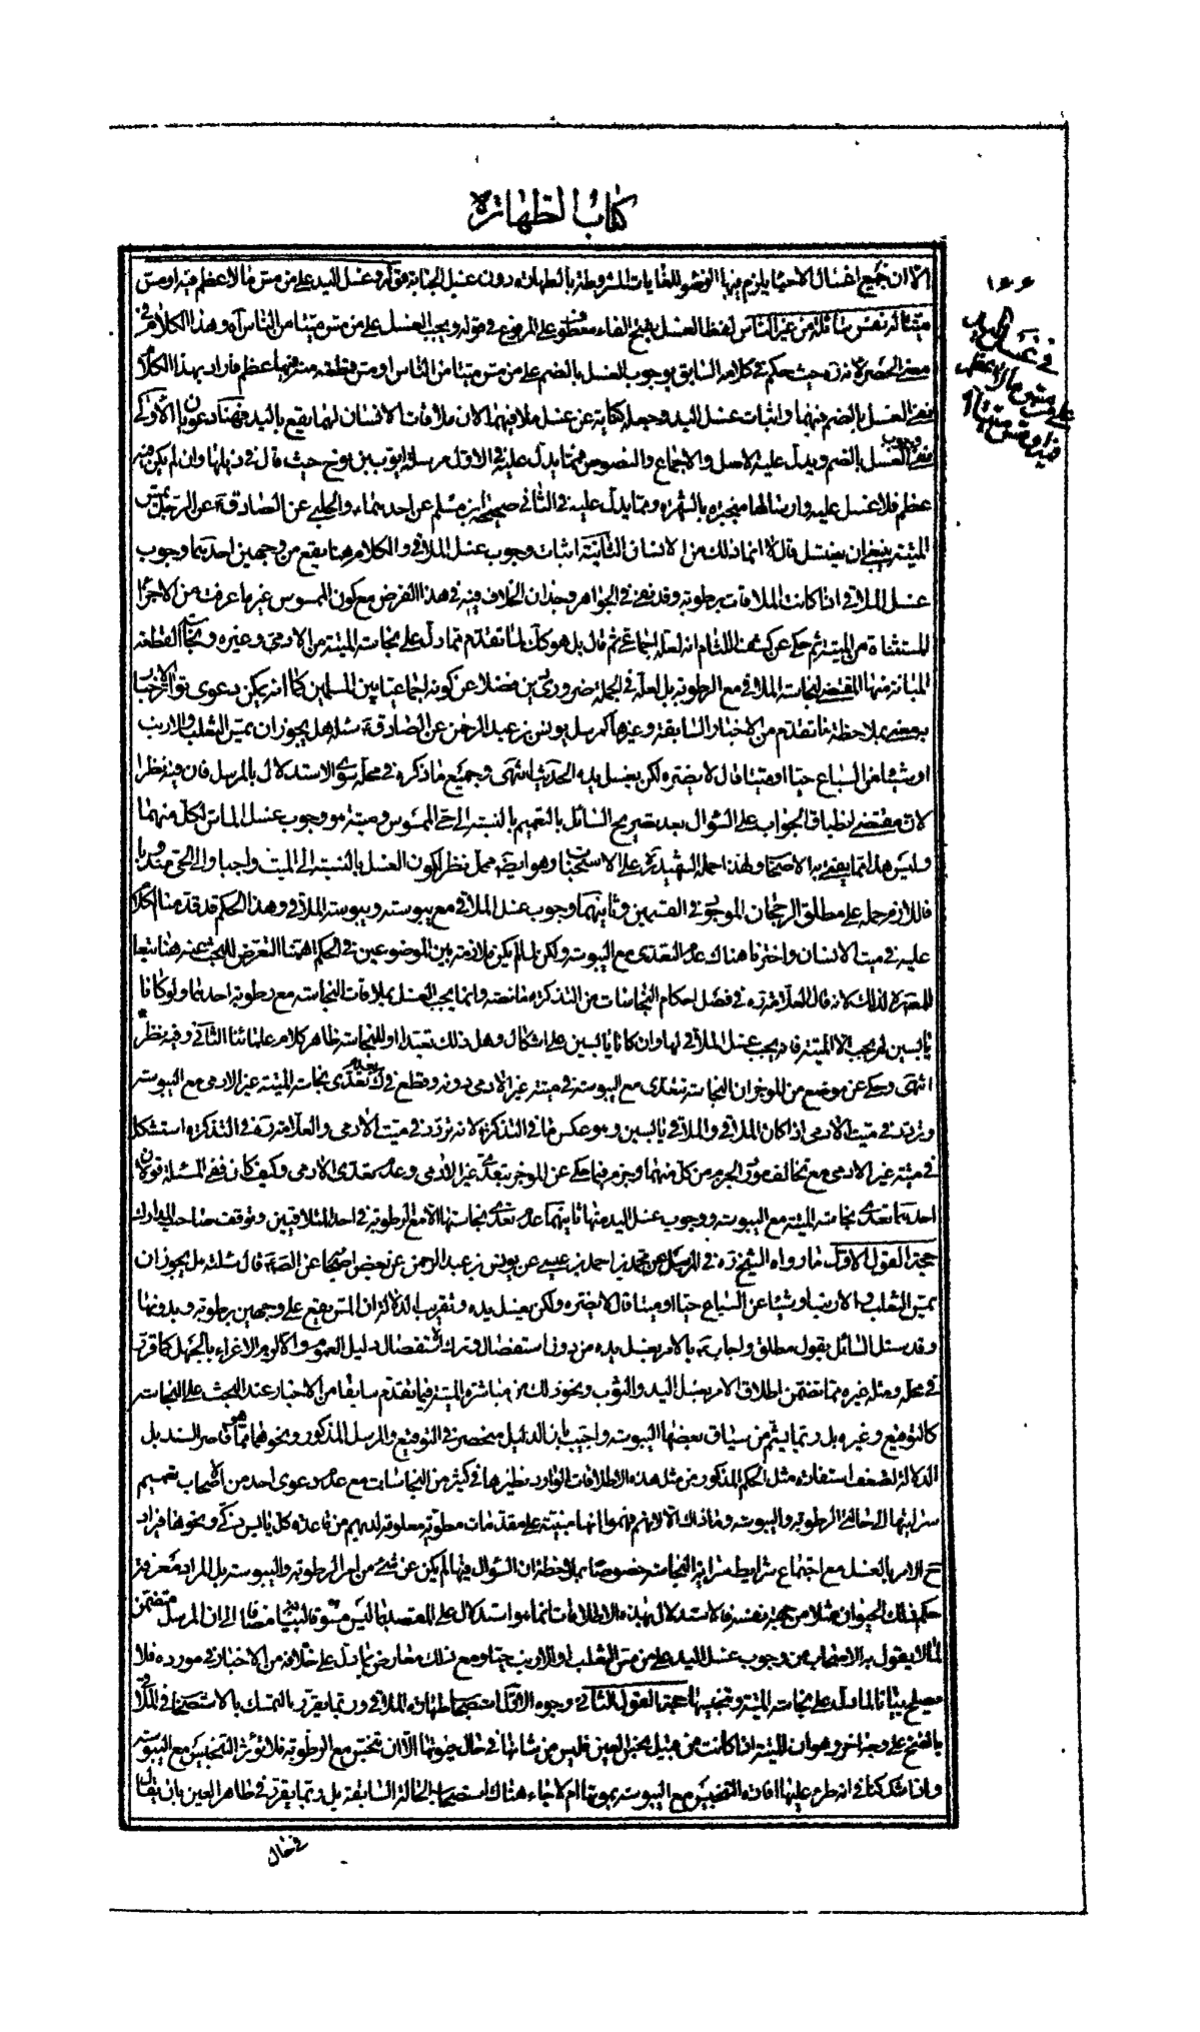 كتاب الطهارة
١٤٤
في غسل اليد
على من مس ما لا عظم
فيه او مس ميتا
الا ان جميع اغسال الاحياء يلزم فيها الوضوء للغايات المشروطة بالطهارة دون غسل الجنابة قوله وغسل اليد على من مس ما لا عظم فيه او مس
ميتا له نفس سائلة من غير الناس لفظ الغسل بفتح الفاء معطوف على المرفوع في قوله ويجب الغسل على من مس ميتا من الناس اه وهذا الكلام في
معنى الحصر لانه ره حيث حكم في كلامه السابق بوجوب الغسل بالضم على من مس ميتا من الناس او مس قطعة منه فيها عظم فاراد بهذا الكلام
نفى الغسل بالضم فيهما واثبات غسل اليد وجعله كناية عن غسل ملاقيهما لان ملاقات الانسان لهما يقع باليد فهنا دعويان الاولى
نفى وجوب الغسل بالضم ويدل عليه الاصل والاجماع والنصوص فمما يدل عليه في الاول مرسلة ايوب بن نوح حيث قال في ذيلها وان لم يكن فيه
عظم فلا غسل عليه وارسالها منجبرة بالشهرة ومما يدل عليه في الثاني صحيحة ابن مسلم عن احدهما ع والحلبي عن الصادق ع عن الرجل يمس
الميتة ينبغي ان يغتسل قال لا انما ذلك من الانسان الثانية اثبات وجوب غسل الملاقي والكلام هنا يقع من وجهين احدهما وجوب
غسل الملاقي اذا كانت الملاقات برطوبة وقد نفى في الجواهر وجدان الخلاف فيه في هذا الفرض مع كون الممسوس غير ما عرفت من الاجزاء
المستثناة من الميتة ثم حكى عن كشف اللثام انه لعله اجماعي ثم قال بل هو كك لما تقدم مما دل على نجاسة الميتة من الادمي وغيره ونجاسة القطعة
المبانة منها المقتضي لنجاسة الملاقي مع الرطوبة بل لعله في الجملة ضروري بين فضلا عن كونه اجماعيا بين المسلمين كما انه يمكن دعوى تواتر الاخبار
بمعنى بملاحظة ما تقدم من الاخبار السابقة وغيرها كمرسل يونس بن عبد الرحمن عن الصادق ع سئله هل يجوز ان يمس الثعلب والارنب
او شيئا من السباع حيا او ميتا قال لا يضره لكن يغسل يده الحديث انتهى وجميع ما ذكره في محله سوى الاستدلال بالمرسل فان فيه نظرا
لان مقتضى انطباق الجواب على السؤال بعد تصريح السائل بالتعميم بالنسبة الى حي الممسوس وميته هو وجوب غسل الماس لكل منهما
وليس هذا مما يفتي به الاصحاب ولهذا حمله الشهيد ره على الاستحباب وهو ايضا محل نظر لكون الغسل بالنسبة الى الميت واجبا والى الحي مندوبا
فاللازم حمله على مطلق الرجحان الموجود في القسمين وثانيهما وجوب غسل الملاقي مع يبوسته ويبوسة الملاقى وهذا الحكم قد قدمنا الكلام
عليه في ميت الانسان واخترنا هناك عدم التعدي مع اليبوسة ولكن لما لم يكن ملازمة بين الموضوعين في الحكم اهمنا التعرض للبحث عنه هنا تبعا
للمعتبرة لذلك لانه قال العلامة ره في فصل احكام النجاسات من التذكرة ما نصه وانما يجب الغسل بملاقات النجاسة مع رطوبة احدهما ولو كانا
يابسين لم يجب الا الميتة فانه يجب غسل الملاقي لها وان كانا يابسين على اشكال وهل ذلك تعبدا او للنجاسة ظاهر كلام علمائنا الثاني وفيه نظر
انتهى وحكى عن موضع من الموجز ان النجاسة تتعدى مع اليبوسة في ميتة غير الادمي دونه وقطع في ك بتعدي نجاسة الميتة غير الادمي مع اليبوسة
وتردد في ميت الادمي اذا كان الملاقي والملاقى يابسين وهو عكس ما في التذكرة لانه تردد في ميت الادمي والعلامة ره في التذكرة استشكل
في ميتة غير الادمي مع تخالف مورد الجزم من كل منهما وجزم فيما حكى عن الموجز بتعدي غير الادمي وعدم تعدي الادمي وكيف كان ففي المسئلة قولان
احدهما تعدي نجاسة الميتة مع اليبوسة ووجوب غسل اليد منها ثانيهما عدم تعدي نجاستها الا مع الرطوبة في احد المتلاقيين وتوقف صاحب المدارك
حجة القول الاول ما رواه الشيخ ره في المرسل عن محمد بن احمد بن عيسى عن يونس بن عبد الرحمن عن بعض اصحابنا عن الصادق ع قال سئلته هل يجوز ان
يمس الثعلب والارنب او شيئا من السباع حيا او ميتا قال لا يضره ولكن يغسل يده وتقريب الدلالة ان المس يقع على وجهين برطوبة وبدونها
وقد سئل السائل بقول مطلق واجاب ع بالامر بغسل يده من دون استفصال وترك الاستفصال دليل العموم والا لزم الاغراء بالجهل كما قرر
في محله ومثله غيره مما تضمن اطلاق الامر بغسل اليد والثوب ونحو ذلك من مباشرة الميتة فيما تقدم سابقا من الاخبار عند البحث على النجاسة
كالتوقيع وغيره بل ربما يشم من سياق بعضها اليبوسة واجيب بان الدليل منحصر في التوقيع والمرسل المذكور ونحوهما مما هو قاصر السند بل
الدلالة لضعف استفادة مثل الحكم المذكور من مثل هذه الاطلاقات الوارد نظيرها في كثير من النجاسات مع عدم دعوى احد من الاصحاب تعميم
سرايتها الى حالتي الرطوبة واليبوسة وما ذاك الا لانهم فهموا انها مبنية على مقدمات مطوية معلومة لديهم من قاعدة كل يابس ذكي ونحوها فيراد
ح الامر بالغسل مع اجتماع شرايط سراية النجاسة خصوصا بملاحظة ان السؤال فيها لم يكن عن شئ من امر الرطوبة واليبوسة بل المراد معرفة
حكم ذلك الحيوان مثلا من حيث نفسه فالاستدلال بهذه الاطلاقات انما هو استدلال على المقصد بما ليس مسوقا لبيانه مضافا الى ان المرسل متضمن
لما لا يقول به الاصحاب من وجوب غسل اليد على من مس الثعلب او الارنب حيا ومع ذلك معارض بما دل على خلافه من الاخبار في مورده فلا
يصلح بيانا لما دل على نجاسة الميتة وتنجيسها حجة القول الثاني وجوه الاول استصحاب طهارة الملاقي وربما يقرر بالتمسك بالاستصحاب في الملاقى
بالفتح على وجه اخر وهو ان الميتة اذا كانت من قبيل نجس العين فليس من شانها في حال حيوتها الا ان تنجس مع الرطوبة فلا تؤثر التنجيس مع اليبوسة
واذا شككنا في انه طرء عليها افادة التنجيس مع اليبوسة بموتها ام لا جاء هناك استصحاب الحالة السابقة بل ربما يقرر في طاهر العين بان يقال
في حال